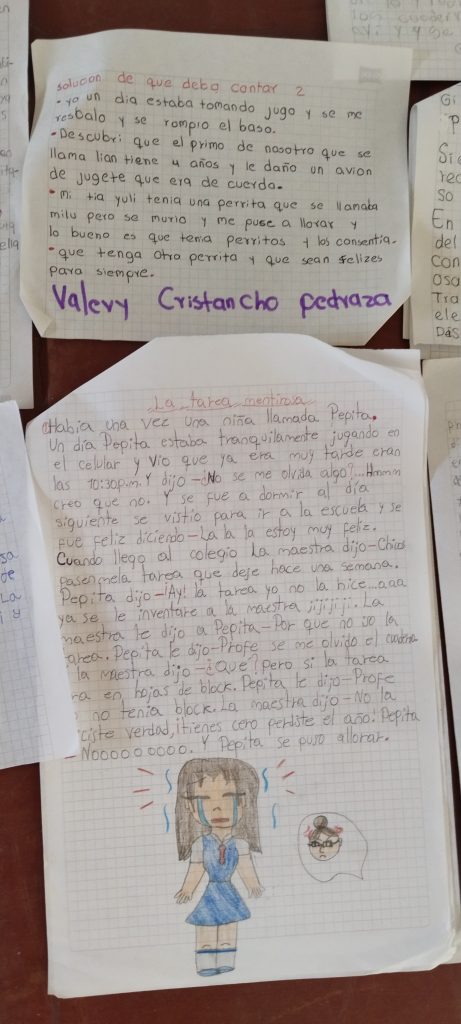 solucion de que debo contar 2
• yo un dia estaba tomando jugo y se me
resbalo y se rompio el baso.
• Descubri que el primo de nosotro que se
llama lian tiene 4 años y le daño un avion
de jugete que era de cuerda.
• mi tia yuli tenia una perrita que se llamaba
milu pero se murio y me puse a llorar y
lo bueno es que tema perritos y los consentia.
• que tenga otro perrita y que sean felizes
para siempre.
Valevy Cristancho pedraza
La tarea mentirosa
Habia una vez una niña llamada Pepita.
Un dia Pepita estaba tranquilamente jugando en
el celular y vio que ya era muy tarde eran
las 10:30p.m. Y dijo -¿No se me olvida algo?...Hmmm
creo que no. Y se fue a dormir al día
siguiente se vistio para ir a la escuela y se
fue feliz diciendo-La la la estoy muy feliz.
Cuando llego al colegio La maestra dijo-Chicos
pasenmela tarea que deje hace una semana.
Pepita dijo-¡Ay! la tarea yo no la hice...aaa
ya se le inventare a la maestra jijijiji. La
maestra le dijo a Pepita-Por que no so la
tarea. Pepita le dijo-Profe se me olvido el cuaderno
la maestra dijo -¿Que? pero si la tarea
ra en hojas de block. Pepita le dijo-Profe
no tenia block. La maestra dijo-No la
ciste verdad, ¡tienes cero perdiste el año! Pepita
-Nooooooooo. Y Pepita se puso allorar.